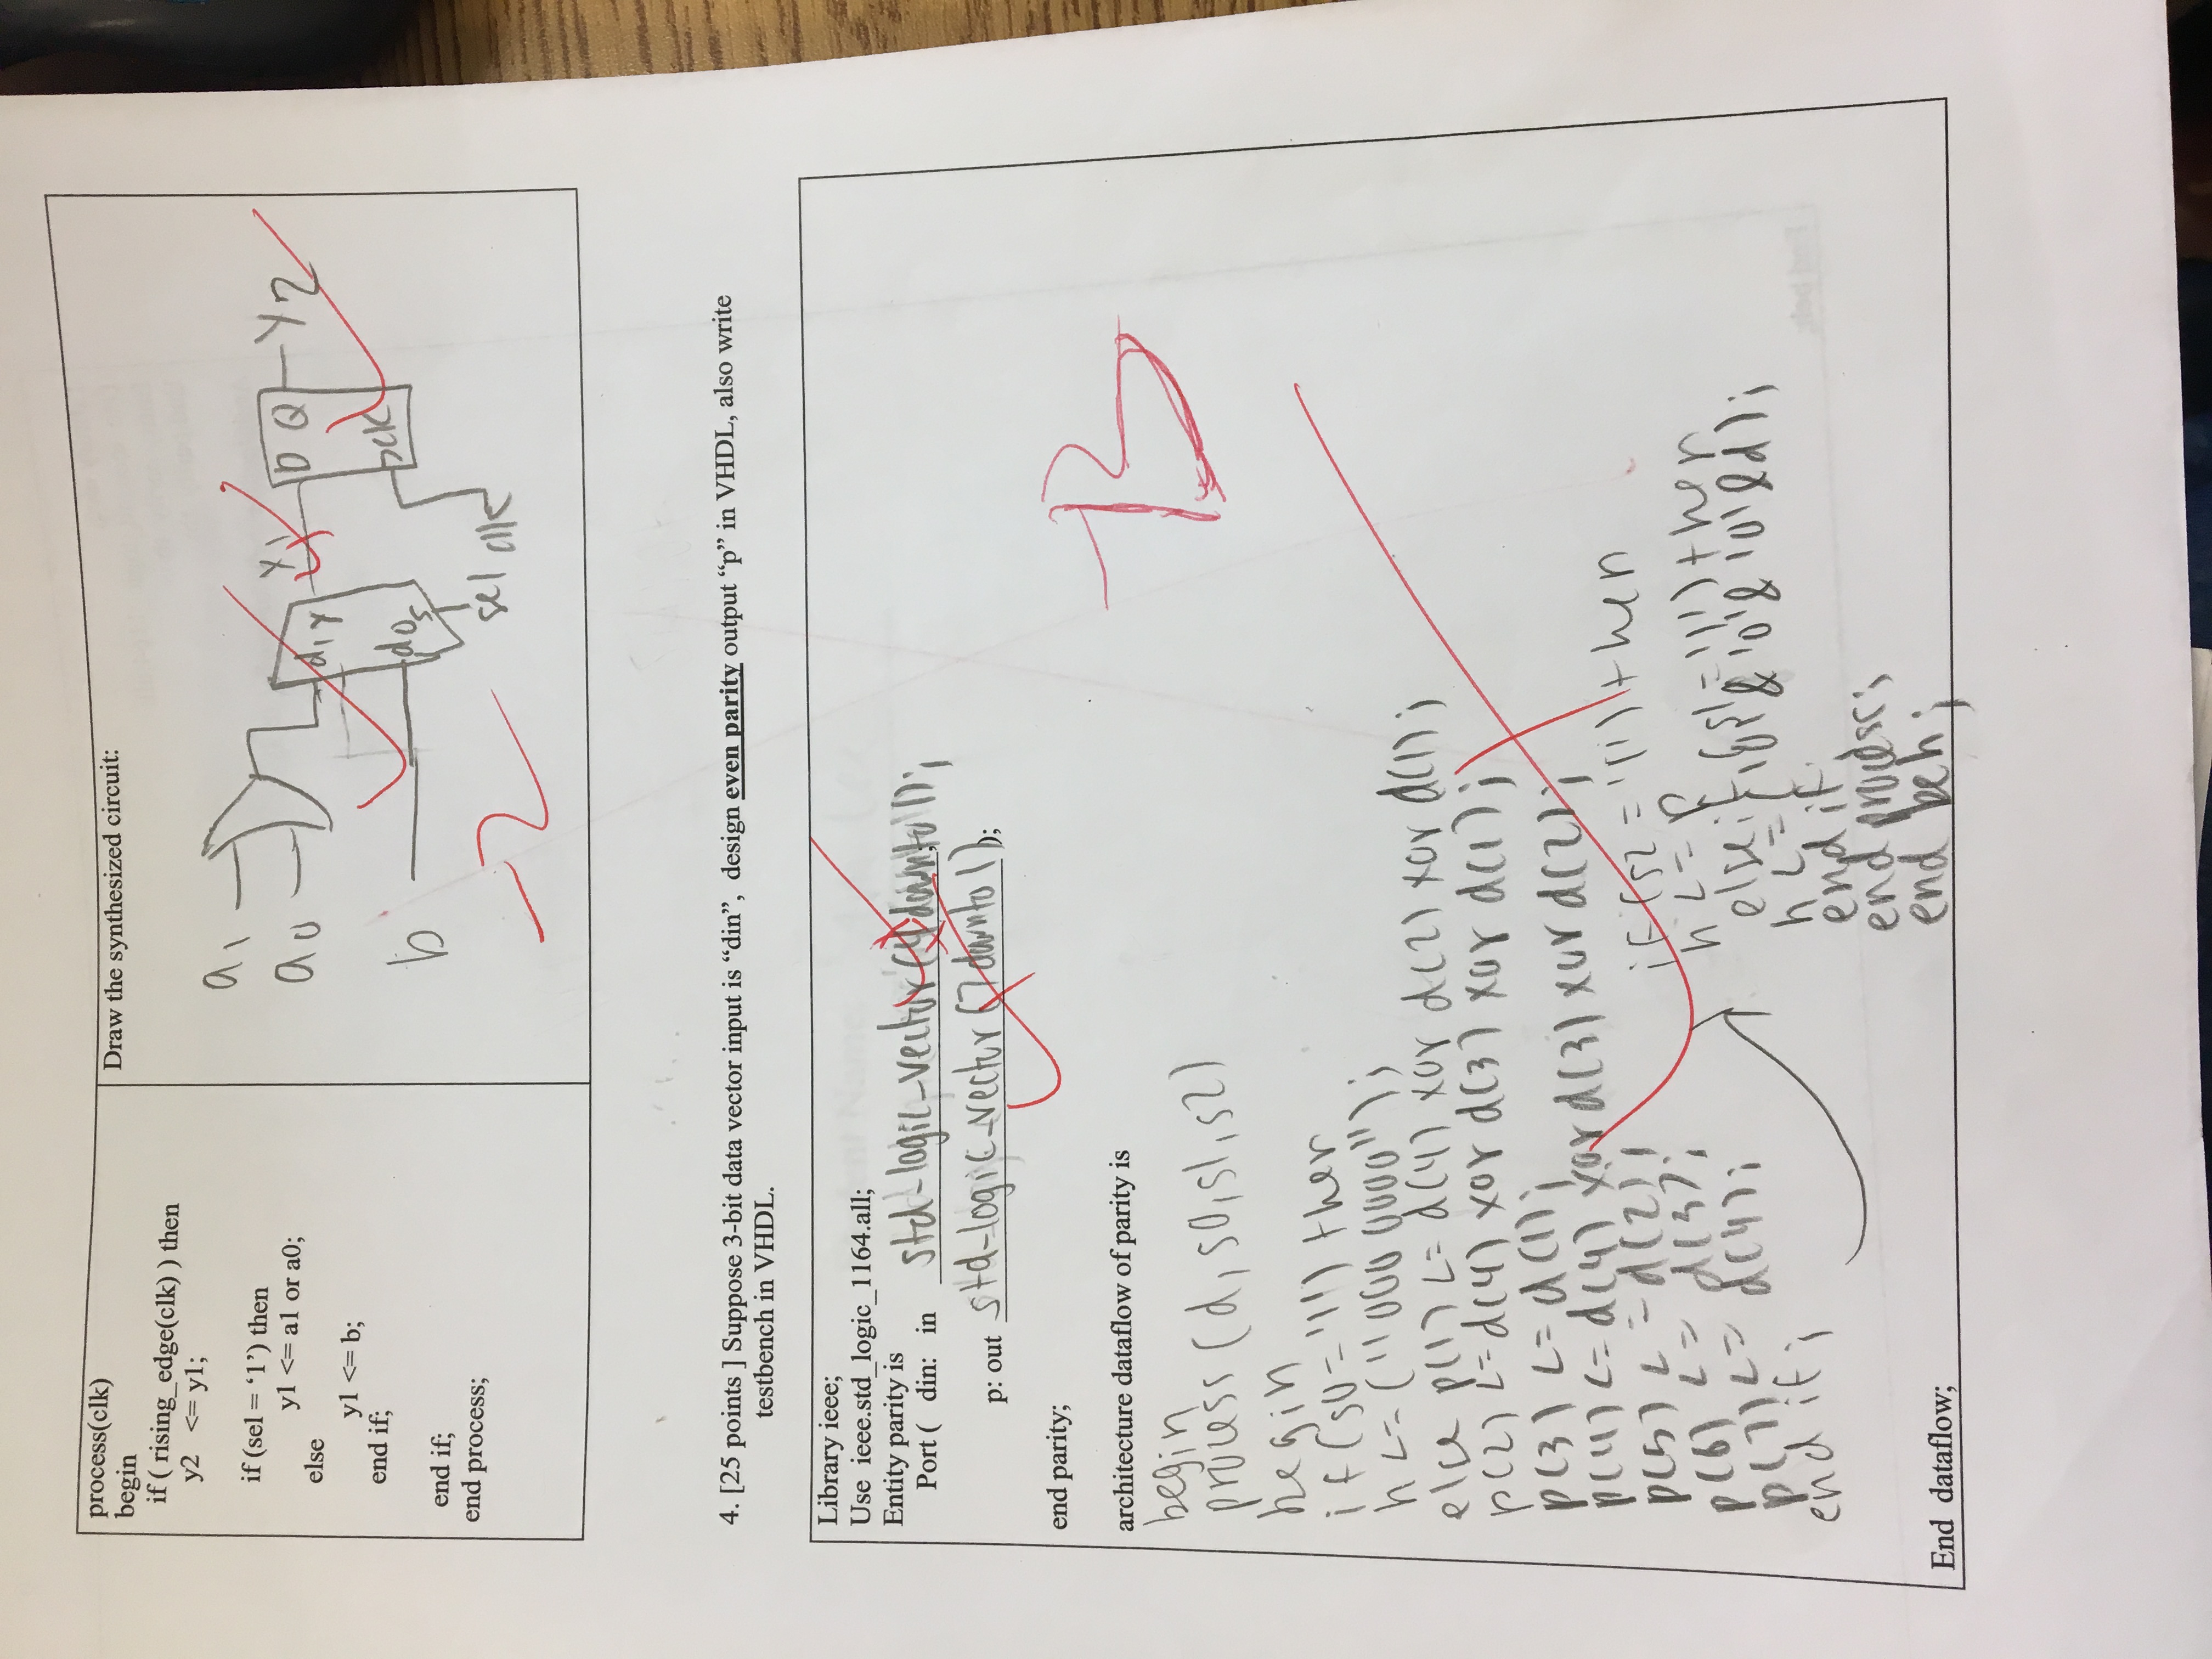 process(clk)
begin
if ( rising_edge(clk) ) then
y2 <= y1;
if (sel = ‘1’) then
y1 <= a1 or a0;
else
y1 <= b;
end if;
end if;
end process;
Draw the synthesized circuit:
a1
a0
b
d1 y
d0 s
sel
y1
D Q
clk
clk
y2
-2
4. [25 points ] Suppose 3-bit data vector input is “din”, design even parity output “p” in VHDL, also write
testbench in VHDL.
Library ieee;
Use ieee.std_logic_1164.all;
Entity parity is
Port ( din: in std-logic-vector(4 downto 1);
p: out std-logic-vector(7 downto 1);
end parity;
architecture dataflow of parity is
begin
process (d, s0, s1, s2)
begin
if (s0 = '1') then
h <= ("000 0000");
else p(1) <= d(4) xor d(2) xor d(1);
p(2) <= d(4) xor d(3) xor d(1);
p(3) <= d(1);
p(4) <= d(4) xor d(3) xor d(2);
p(5) <= d(2);
p(6) <= d(3);
p(7) <= d(4);
end if;
if (s2 = '1') then
h <= p
elseif (s1 = '1') then
h <= ('0' & '0' & '0' & d);
end if;
end process;
end beh;
End dataflow;